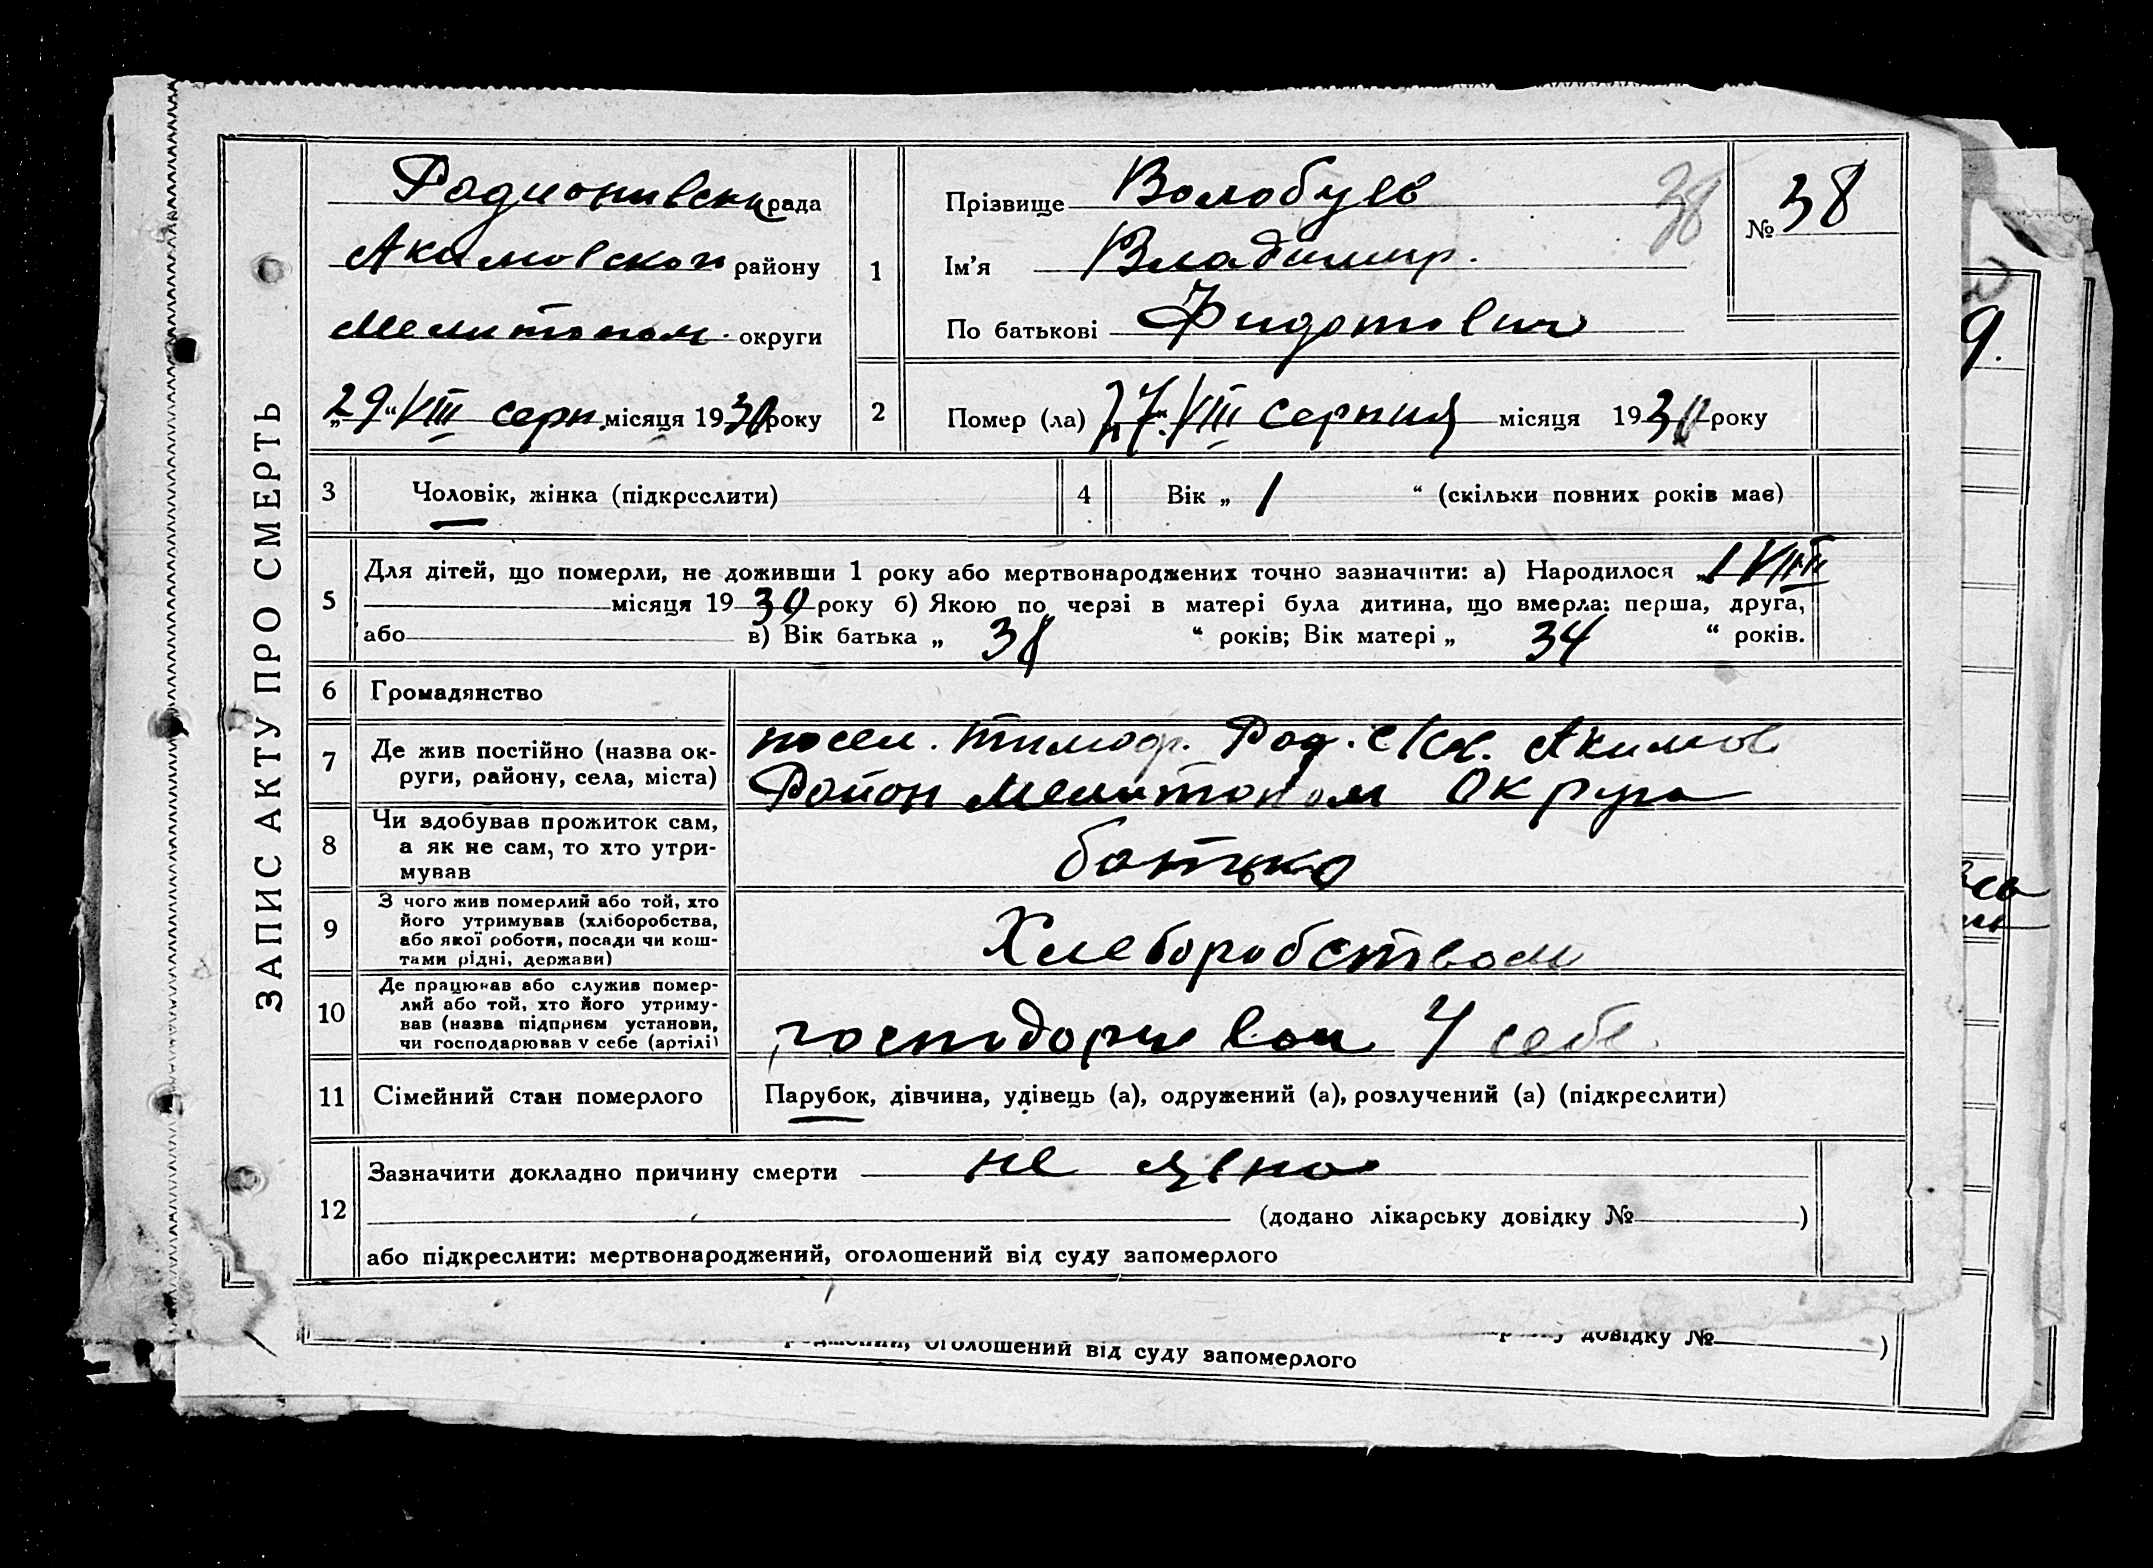 ЗАПИС АКТУ ПРО СМЕРТЬ
Радионивська рада
Акимовского району
Мелитопол. округи
„29“ VIII серп. місяця 1930 року
1
Прізвище Волобуев
38
№ 38
Ім'я Владимир.
По батькові Фидотович
2
Помер (ла) „27“ VIII серпня місяця 1930 року
3
Чоловік, жінка (підкреслити)
4
Вік „ 1 “ (скільки повних років має)
5
Для дітей, що померли, не доживши 1 року або мертвонароджених точно зазначити: а) Народилося „1 VIII“
місяця 1930 року б) Якою по черзі в матері була дитина, що вмерла: перша, друга,
або в) Вік батька „ 38 “ років; Вік матері „ 34 “ років.
6
Громадянство
7
Де жив постійно (назва ок-
руги, району, села, міста)
посел. Тимоф. Рад. с/к. Акимов
Район Мелитопол Округа
8
Чи здобував прожиток сам,
а як не сам, то хто утри-
мував
батько
9
З чого жив померлий або той, хто
його утримував (хліборобства,
або якої роботи, посади чи кош-
тами рідні, держави)
Хлеборобством
10
Де працював або служив помер-
лий або той, хто його утриму-
вав (назва підприєм установи,
чи господарював у себе (артілі)
господарював у себе
11
Сімейний стан померлого
Парубок, дівчина, удівець (а), одружений (а), розлучений (а) (підкреслити)
12
Зазначити докладно причину смерти не явно
(додано лікарську довідку № )
або підкреслити: мертвонароджений, оголошений від суду запомерлого
довідку № )
оголошений від суду запомерлого
9.